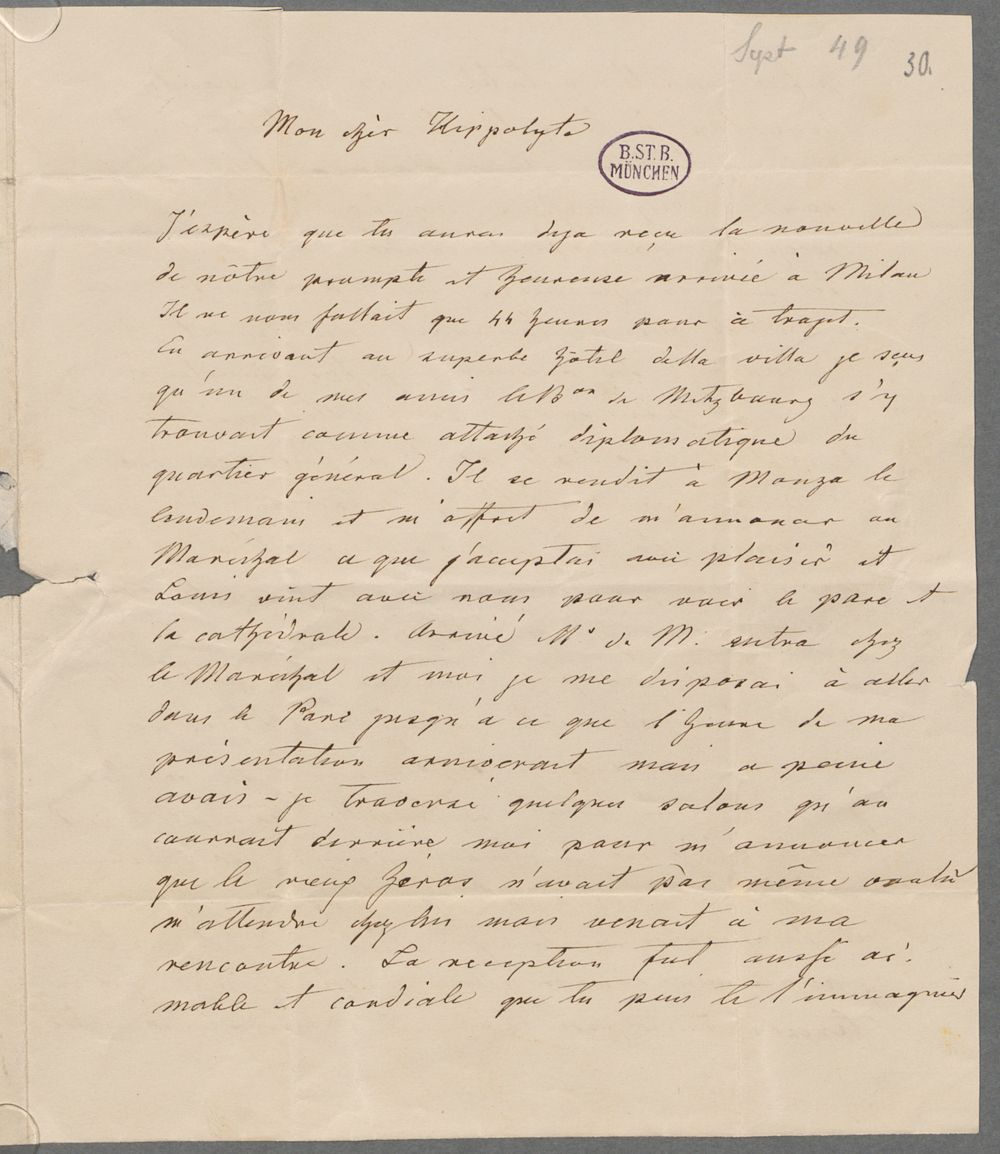 Sept 49
30.
Mon chèr Hippolyte
B.ST.B.
MÜNCHEN
J'espère que tu auras deja reçu la nouvelle
de nôtre prompte et heureuse arrivée à Milan
Il ne nous fallait que 44 heures pour ce trajet.
En arrivant au superbe hôtel della villa je sçus
qu'un de mes amis le Bon de Metzbourg s'y
trouvait comme attaché diplomatique du
quartier général. Il se rendit à Monza le
lendemain et m'offrit de m'annoncer au
Maréchal ce que j'acceptai avec plaisir et
Louis vint avec nous pour voir le parc et
la cathédrale. Arrivé Mr de M. entra chez
le Maréchal et moi je me disposai à aller
dans le Parc jusqu'à ce que l'heure de ma
présentation arriverait mais a peine
avais-je traversé quelques salons qu'on
courrait derrière moi pour m'annoncer
que le vieux héros n'avait pas même voulu
m'attendre chez lui mais venait à ma
rencontre. La reception fut aussi ai-
mable et cordiale que tu peus te l'immaginer